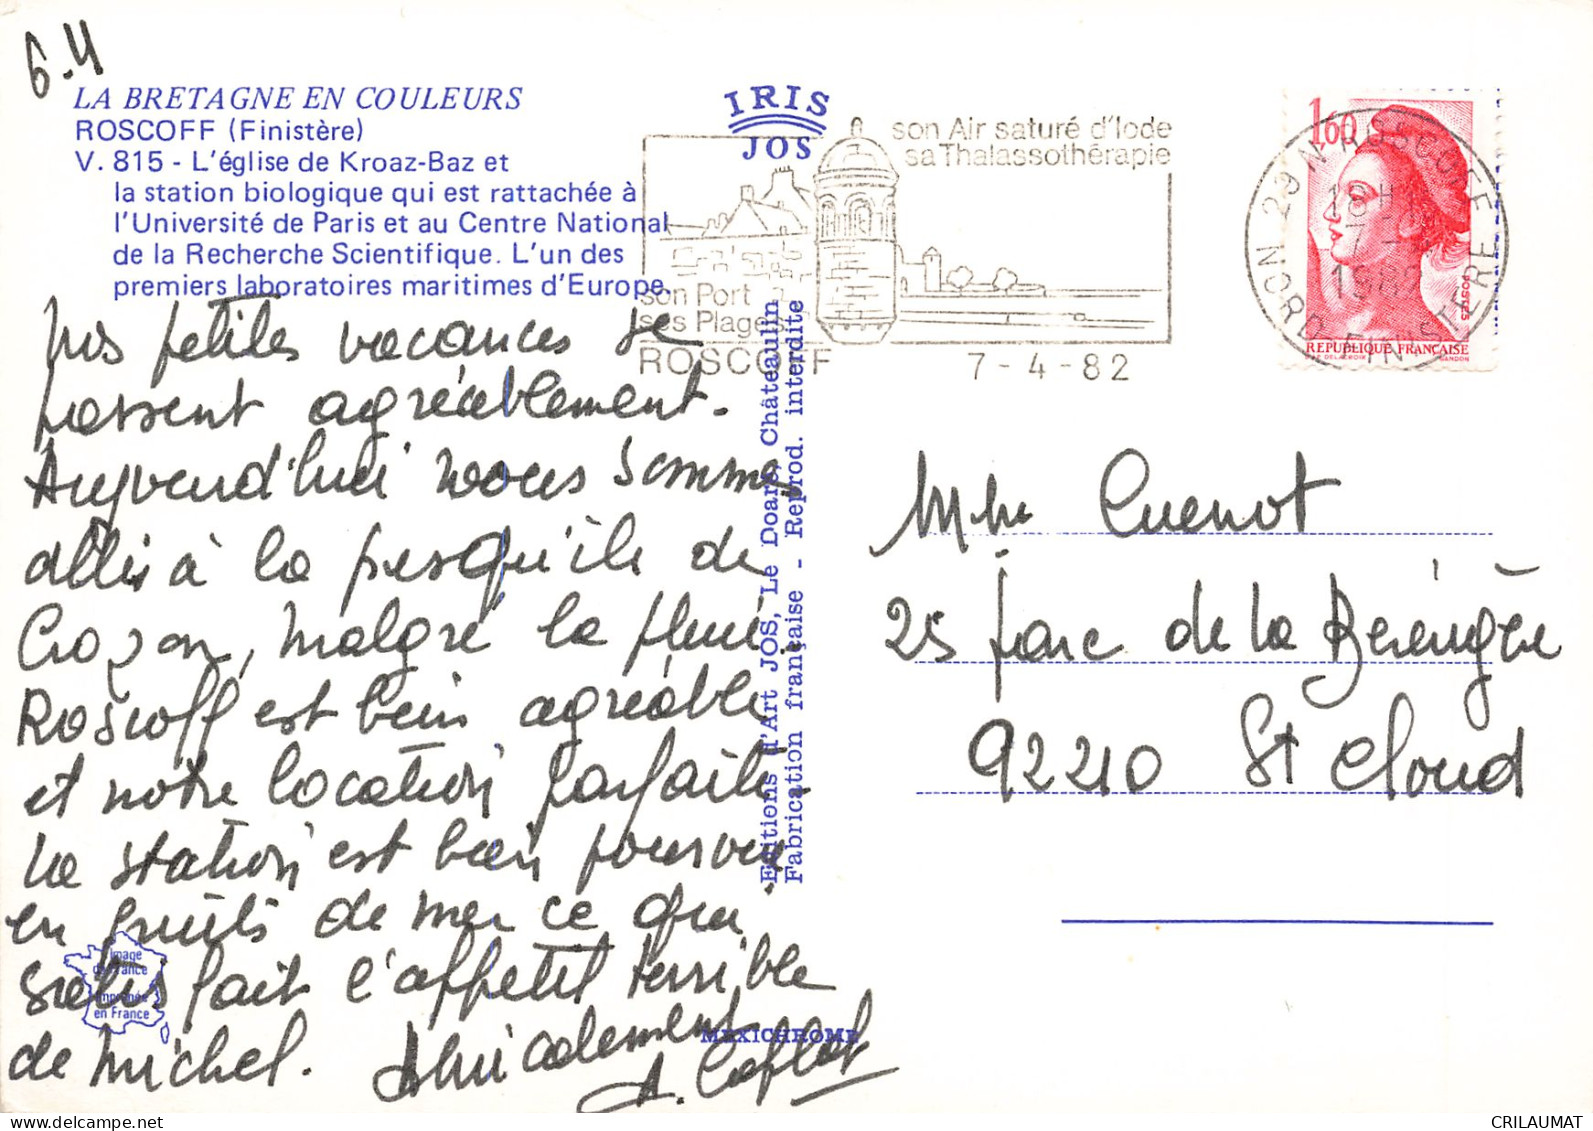 6.4
LA BRETAGNE EN COULEURS
ROSCOFF (Finistère)
V. 815 - L'église de Kroaz-Baz et
la station biologique qui est rattachée à
l'Université de Paris et au Centre National
de la Recherche Scientifique. L'un des
premiers laboratoires maritimes d'Europe.
IRIS
JOS
son Air saturé d'Iode
sa Thalassothérapie
son Port
ses Plages
ROSCOFF
7-4-82
1,60
POSTES
REPUBLIQUE FRANÇAISE
GANDON
29 N ROSCOFF
18 H
7-
1982
NORD FINISTERE
Nos petites vacances se
passent agréablement.
Aujourd'hui nous sommes
allés à la presqu'ile de
Crozon, malgré la pluie
Roscoff est bien agréable
et notre location parfaite
La station est bien pourvue
en fruits de mer ce qui
fait l'appetit terrible
de Michel. Amicalement
A.
Mme Cuenot
25 parc de la Bérengère
92210 St Cloud
Editions d'Art JOS, Le Doaré, Châteaulin
Fabrication française - Reprod. interdite
Image
de France
imprimée
en France
MEXICHROME
CRILAUMAT